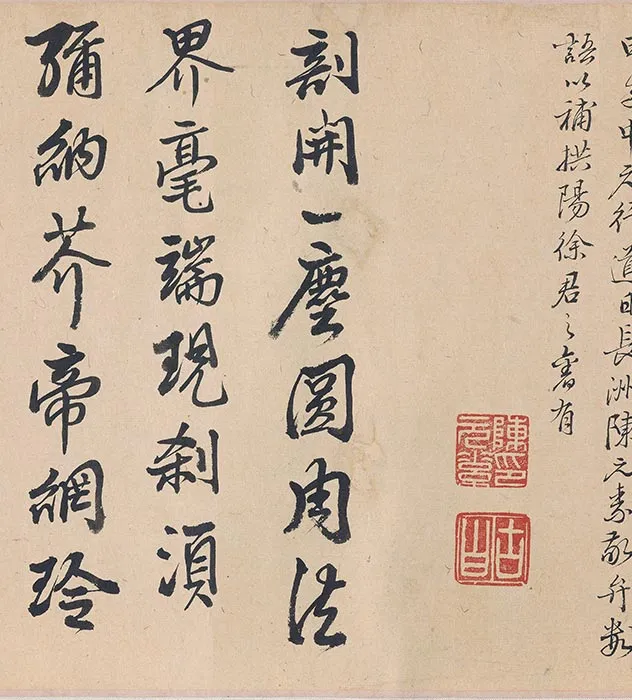 子中元行道日長洲陳元素敬弁數
語以補拱陽徐君之有
陳印元素
古白
剖開一塵圓周法
界毫端現刹須
彌納芥帝網玲